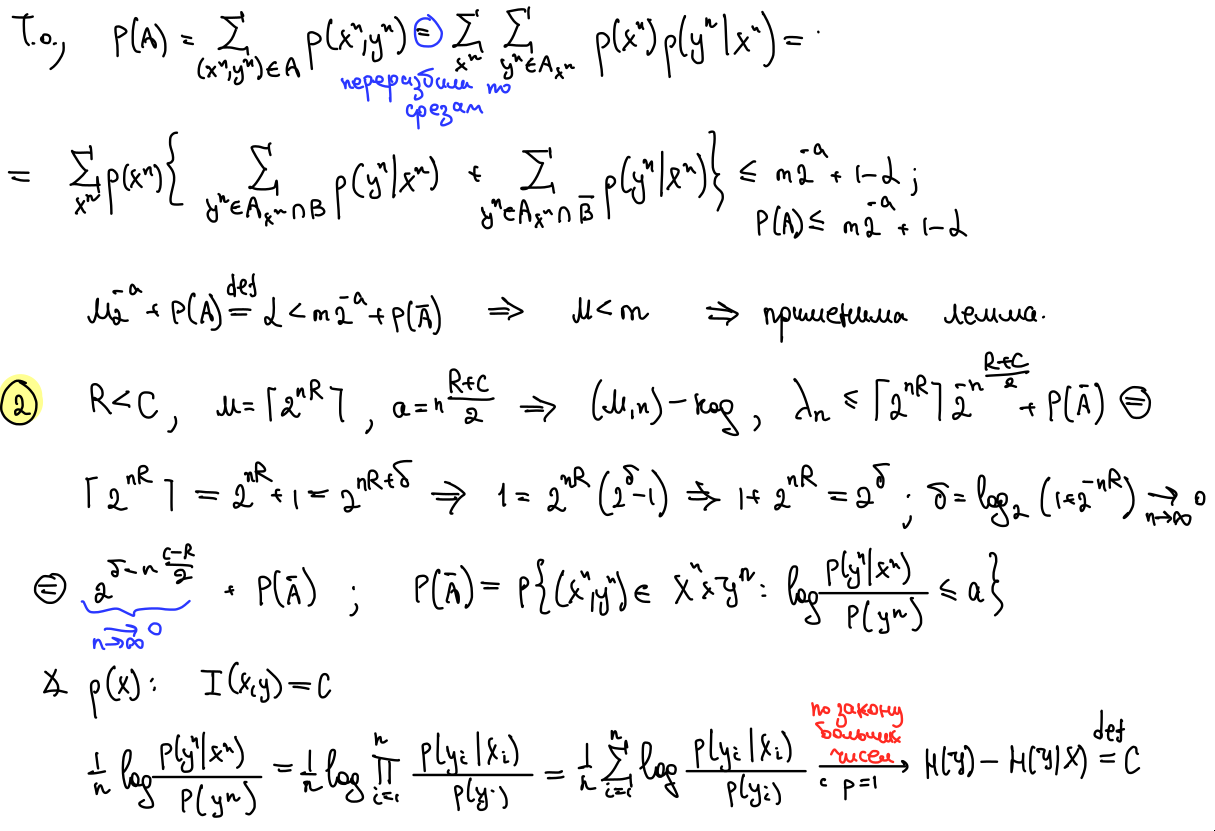 Т.о., P(A) = ∑_{(xⁿ,yⁿ)∈A} p(xⁿ,yⁿ) = ∑_{xⁿ} ∑_{yⁿ∈A_{xⁿ}} p(xⁿ) p(yⁿ|xⁿ) =
переразбили по
срезам
= ∑_{xⁿ} p(xⁿ) { ∑_{yⁿ∈A_{xⁿ}∩B} p(yⁿ|xⁿ) + ∑_{yⁿ∈A_{xⁿ}∩B̄} p(yⁿ|xⁿ) } ≤ m2^{-a} + 1-α ;
P(A) ≤ m2^{-a} + 1-α
M2^{-a} + P(A) \overset{def}{=} α < m2^{-a} + P(Ā) ⇒ M < m ⇒ применима лемма.
② R<C, M=⌈2^{nR}⌉, a = n \frac{R+C}{2} ⇒ (M,n)-код, λₙ ≤ ⌈2^{nR}⌉ 2^{-n\frac{R+C}{2}} + P(Ā) ⊜
⌈2^{nR}⌉ = 2^{nR} + 1 = 2^{nR+δ} ⇒ 1 = 2^{nR}(2^δ-1) ⇒ 1+2^{nR} = 2^δ ; δ = log₂(1+2^{-nR}) \underset{n→∞}{→} 0
⊜ 2^{δ-n\frac{C-R}{2}} + P(Ā) ; P(Ā) = P{(xⁿ,yⁿ) ∈ Xⁿ×Yⁿ: log \frac{P(yⁿ|xⁿ)}{P(yⁿ)} ≤ a}
\underset{n→∞}{→} 0
∡ p(x): I(X,Y) = C
\frac{1}{n} log \frac{P(yⁿ|xⁿ)}{P(yⁿ)} = \frac{1}{n} log ∏_{i=1}^{n} \frac{P(y_i|x_i)}{P(y_i)} = \frac{1}{n} ∑_{i=1}^{n} log \frac{P(y_i|x_i)}{P(y_i)} \xrightarrow[с p=1]{по закону больших чисел} H(Y) - H(Y|X) \overset{def}{=} C